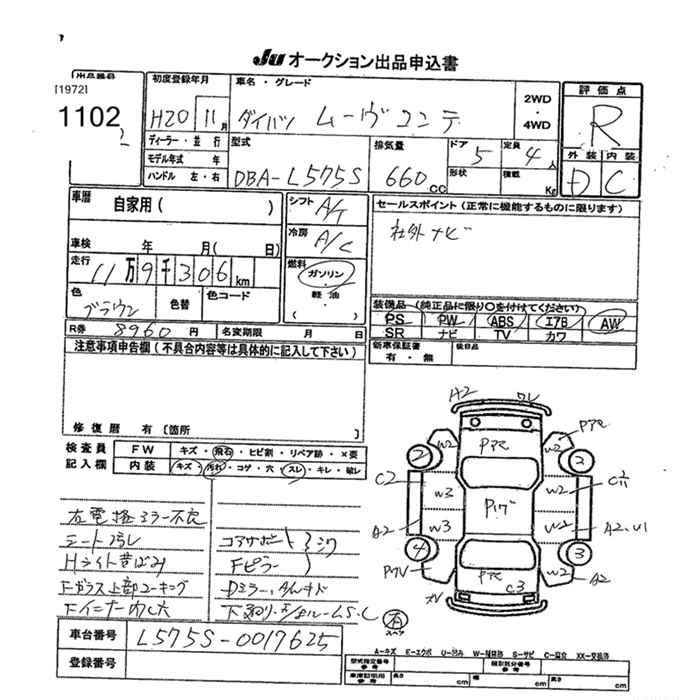 JU オークション出品申込書
出品番号
[1972]
1102
初度登録年月
H20 11月
車名・グレード
ダイハツ ムーヴコンテ
2WD
・
4WD
評価点
R
外装 内装
D C
ディーラー・並行
モデル年式 年
ハンドル 左・右
型式
DBA-L575S
排気量
660cc
ドア 5
定員 4人
形状
積載 Kg
車歴
自家用( )
シフト A/T
冷房 A/C
燃料
ガソリン
・
軽油
( )
車検 年 月( 日)
走行
11万9千306km
色
ブラウン
色替
色コード
R券 8960円
名変期限 月 日
セールスポイント(正常に機能するものに限ります)
社外ナビ
装備品(純正品に限り○を付けてください)
PS PW ABS エアB AW
SR ナビ TV カワ
新車保証書
有・無
後日品
注意事項申告欄(不具合内容等は具体的に記入して下さい)
修復歴 有[箇所 ]
検査員
記入欄
FW キズ・飛石・ヒビ割・リペア跡・×要
内装 キズ・汚れ・コゲ・穴・スレ・キレ・破レ
右電格ミラー不良
シート汚レ
Hライト黄ばみ
Fガラス上部コーキング
コアサポート
Fピラー
シワ
A2
W2
W2
2
2
C2
W3
W2
W3
W2
A2
A2・U1
4
3
W2
A2
C3
有
スペア
車台番号 L575S-0017625
登録番号
A-キズ E-エクボ U-凹み W-補修跡 S-サビ C-腐食 XX-交換済
型式指定番号
参考
類別区分番号
参考
車庫証明用
参考
長さ cm
幅 cm
高さ cm